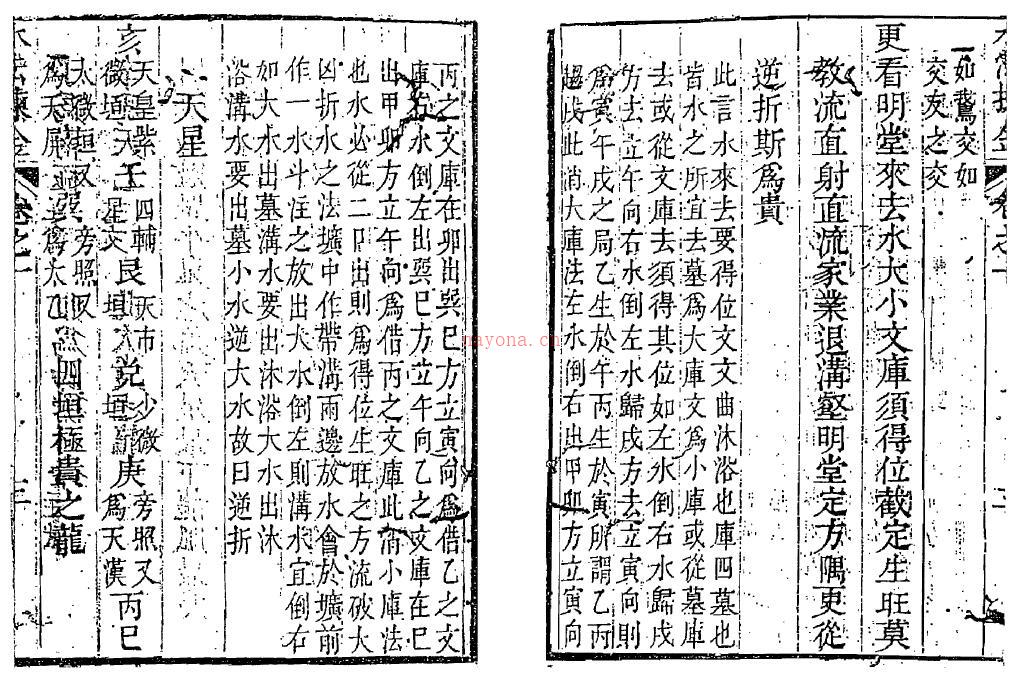 如鵞交如
交友之交
更看明堂來去水大小文庫須得位截定生旺莫
教流直射直流家業退溝壑明堂定方隅更從
逆折斯爲貴
此言水來去要得位文文曲沐浴也庫四墓也
皆水之所宜去墓爲大庫文爲小庫或從墓庫
去或從文庫去須得其位如左水倒右水歸戌
方去立午向右水倒左水歸戌方去立寅向則
爲寅午戌之局乙生於午丙生於寅所謂乙丙
趨戌此消大庫法左水倒右出甲卯方立寅向
丙之文庫在卯出巽巳方立寅向爲借乙之文
庫右水倒左出巽巳方立午向乙之文庫在巳
出甲卯方立午向爲借丙之文庫此消小庫法
也水必從二口出則爲得位生旺之方流破大
凶折水之法壙中作帶溝兩邊放水會於壙前
作一水斗注之放出大水倒左則溝水宜倒右
如大水出墓溝水要出沐浴大水出沐
浴溝水要出墓小水逆大水故曰逆折
天星
亥天皇紫微垣 天壬四輔星文 艮天市垣 兌少微垣 庚旁照又爲天漢 丙巳
太微垣又旁照又
爲天屏 爲太乙 四垣極貴之龍
nayona.cn